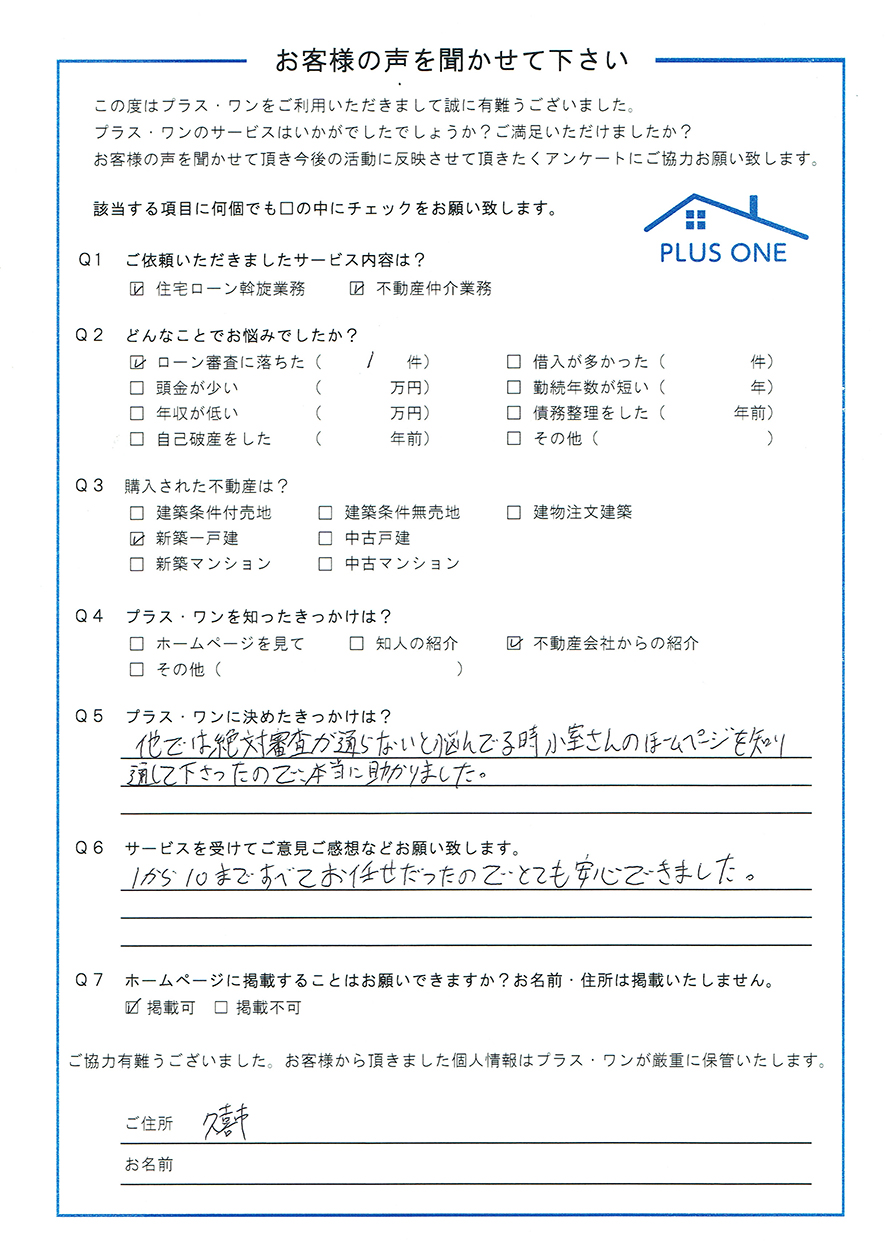 お客様の声を聞かせて下さい
この度はプラス・ワンをご利用いただきまして誠に有難うございました。
プラス・ワンのサービスはいかがでしたでしょうか？ご満足いただけましたか？
お客様の声を聞かせて頂き今後の活動に反映させて頂きたくアンケートにご協力お願い致します。
該当する項目に何個でも□の中にチェックをお願い致します。
PLUS ONE
Q1 ご依頼いただきましたサービス内容は？
☑ 住宅ローン斡旋業務 ☑ 不動産仲介業務
Q2 どんなことでお悩みでしたか？
☑ ローン審査に落ちた（ 1 件） □ 借入が多かった（ 件）
□ 頭金が少い （ 万円） □ 勤続年数が短い（ 年）
□ 年収が低い （ 万円） □ 債務整理をした（ 年前）
□ 自己破産をした （ 年前） □ その他（ ）
Q3 購入された不動産は？
□ 建築条件付売地 □ 建築条件無売地 □ 建物注文建築
☑ 新築一戸建 □ 中古戸建
□ 新築マンション □ 中古マンション
Q4 プラス・ワンを知ったきっかけは？
□ ホームページを見て □ 知人の紹介 ☑ 不動産会社からの紹介
□ その他（ ）
Q5 プラス・ワンに決めたきっかけは？
他では絶対審査が通らないと悩んでる時小室さんのホームページを知り
通して下さったので本当に助かりました。
Q6 サービスを受けてご意見ご感想などお願い致します。
1から10まですべてお任せだったのでとても安心できました。
Q7 ホームページに掲載することはお願いできますか？お名前・住所は掲載いたしません。
☑ 掲載可 □ 掲載不可
ご協力有難うございました。お客様から頂きました個人情報はプラス・ワンが厳重に保管いたします。
ご住所 久喜市
お名前